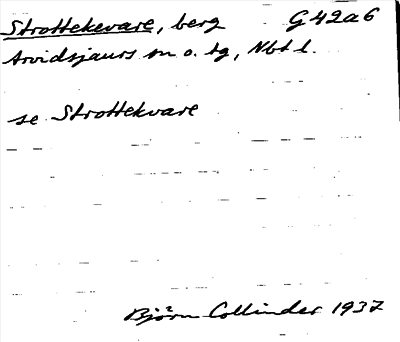 Strottekevare, berg G42a6
Arvidsjaurs sn o. tg, Nbt l.
se Strottekvare
Björn Collinder 1937